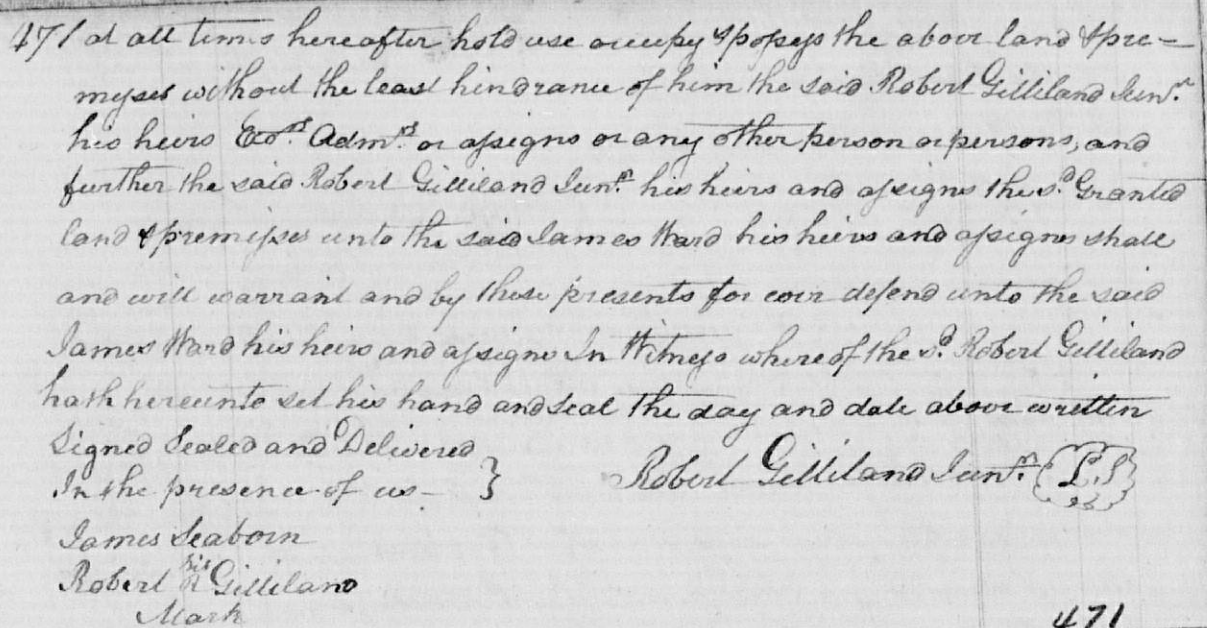 471 at all times hereafter hold use occupy & possess the above land & pre=
myses without the least hindrance of him the said Robert Gilliland Junr.
his heirs Exors. Admrs. or assigns or any other person or persons, and
further the said Robert Gilliland Junr. his heirs and assigns the sd. Granted
land & premisses unto the said James Ward his heirs and assigns shall
and will warrant and by these presents for ever defend unto the said
James Ward his heirs and assigns In Witness whereof the sd. Robert Gilliland
hath hereunto set his hand and seal the day and date above written
Signed Sealed and Delivered
In the presence of us - } Robert Gilliland Junr. {L.S}
James Seaborn
his
Robert R Gilliland
Mark
471